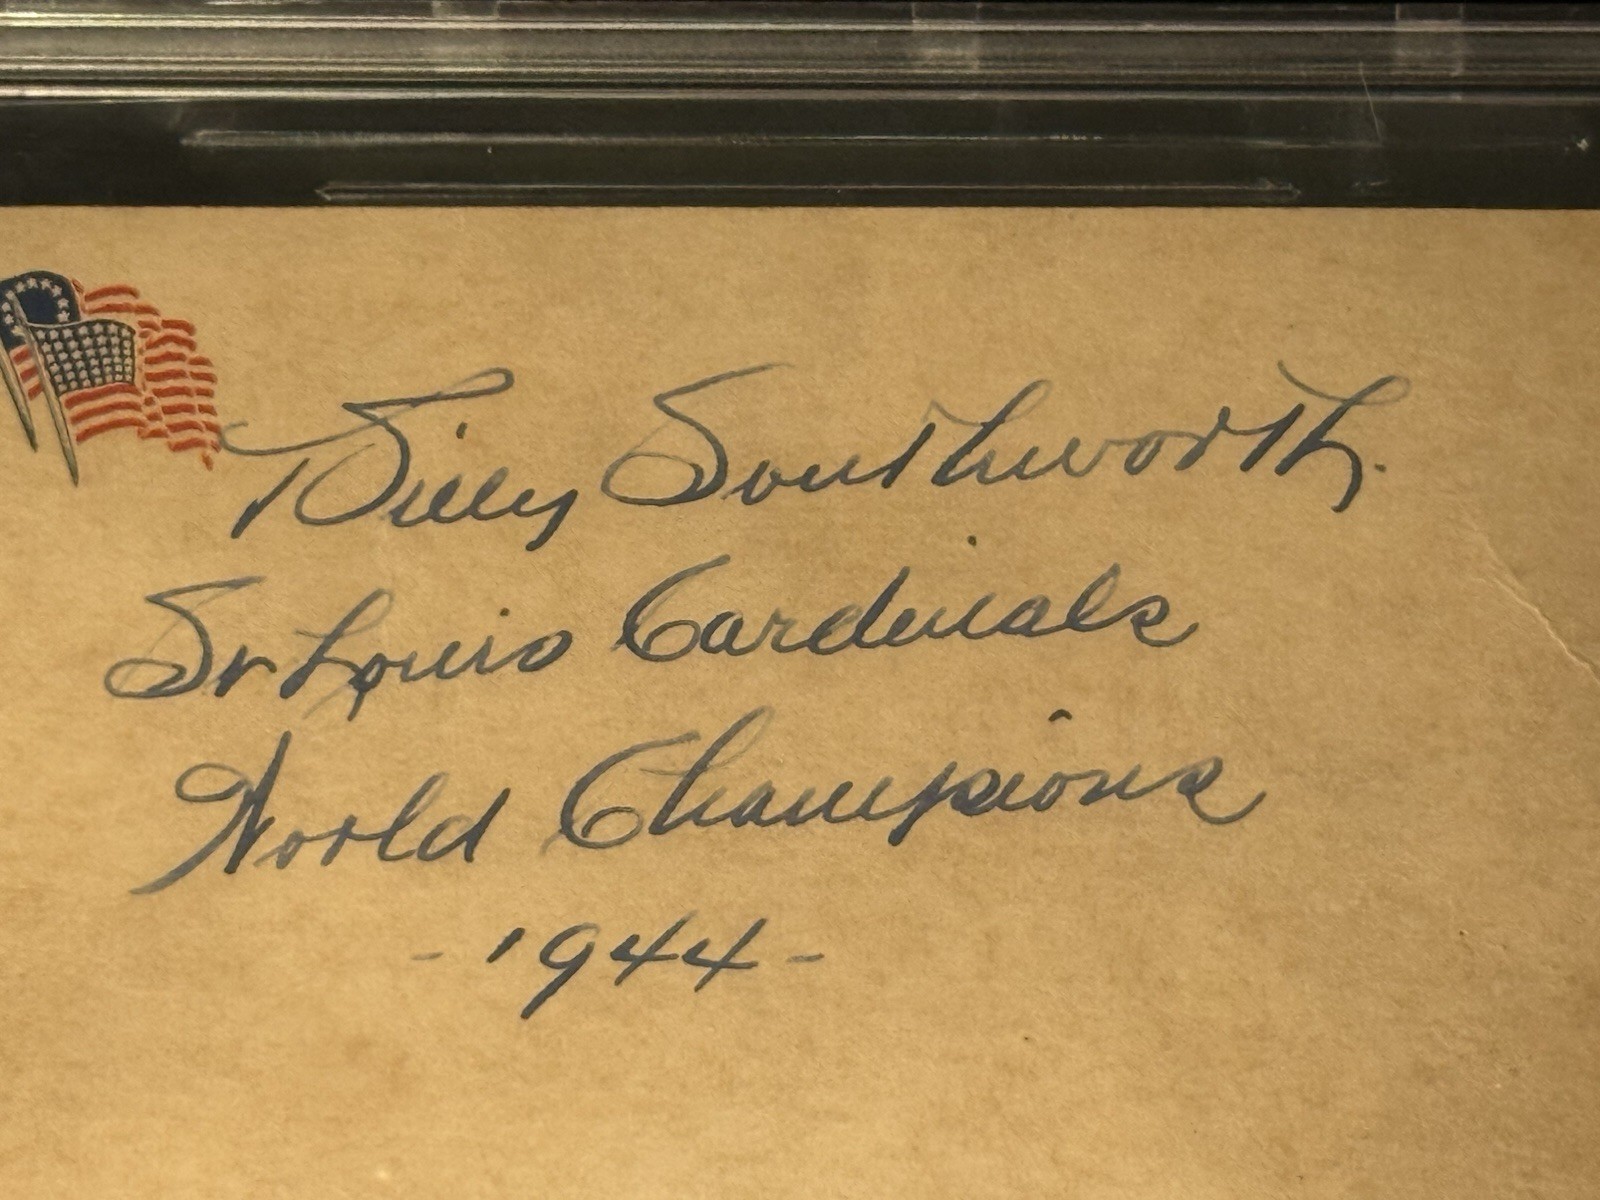 Billy Southworth.
St Louis Cardinals
World Champions
- 1944 -